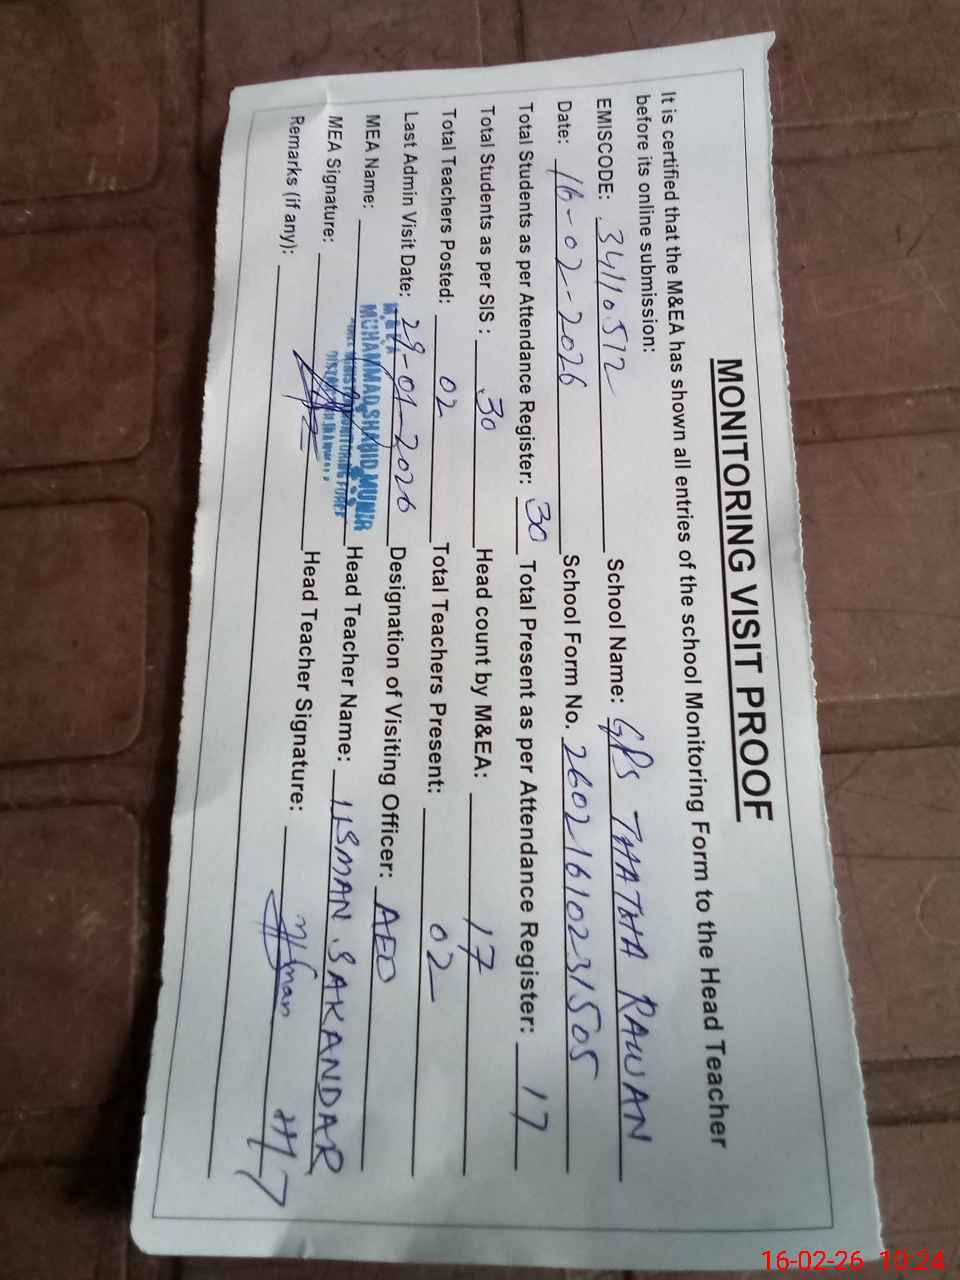 MONITORING VISIT PROOF
It is certified that the M&EA has shown all entries of the school Monitoring Form to the Head Teacher
before its online submission:
EMISCODE: 34110512 School Name: GPS THATHA RAWAN
Date: 16-02-2026 School Form No. 26021610231505
Total Students as per Attendance Register: 30 Total Present as per Attendance Register: 17
Total Students as per SIS : 30 Head count by M&EA: 17
Total Teachers Posted: 02 Total Teachers Present: 02
Last Admin Visit Date: 29-01-2026 Designation of Visiting Officer: AEO
MEA Name: M.E.A MUHAMMAD SHAHID MUNIR Head Teacher Name: USMAN SAKANDAR
MEA Signature: Head Teacher Signature: Usman
Remarks (if any):
16-02-26 10:24